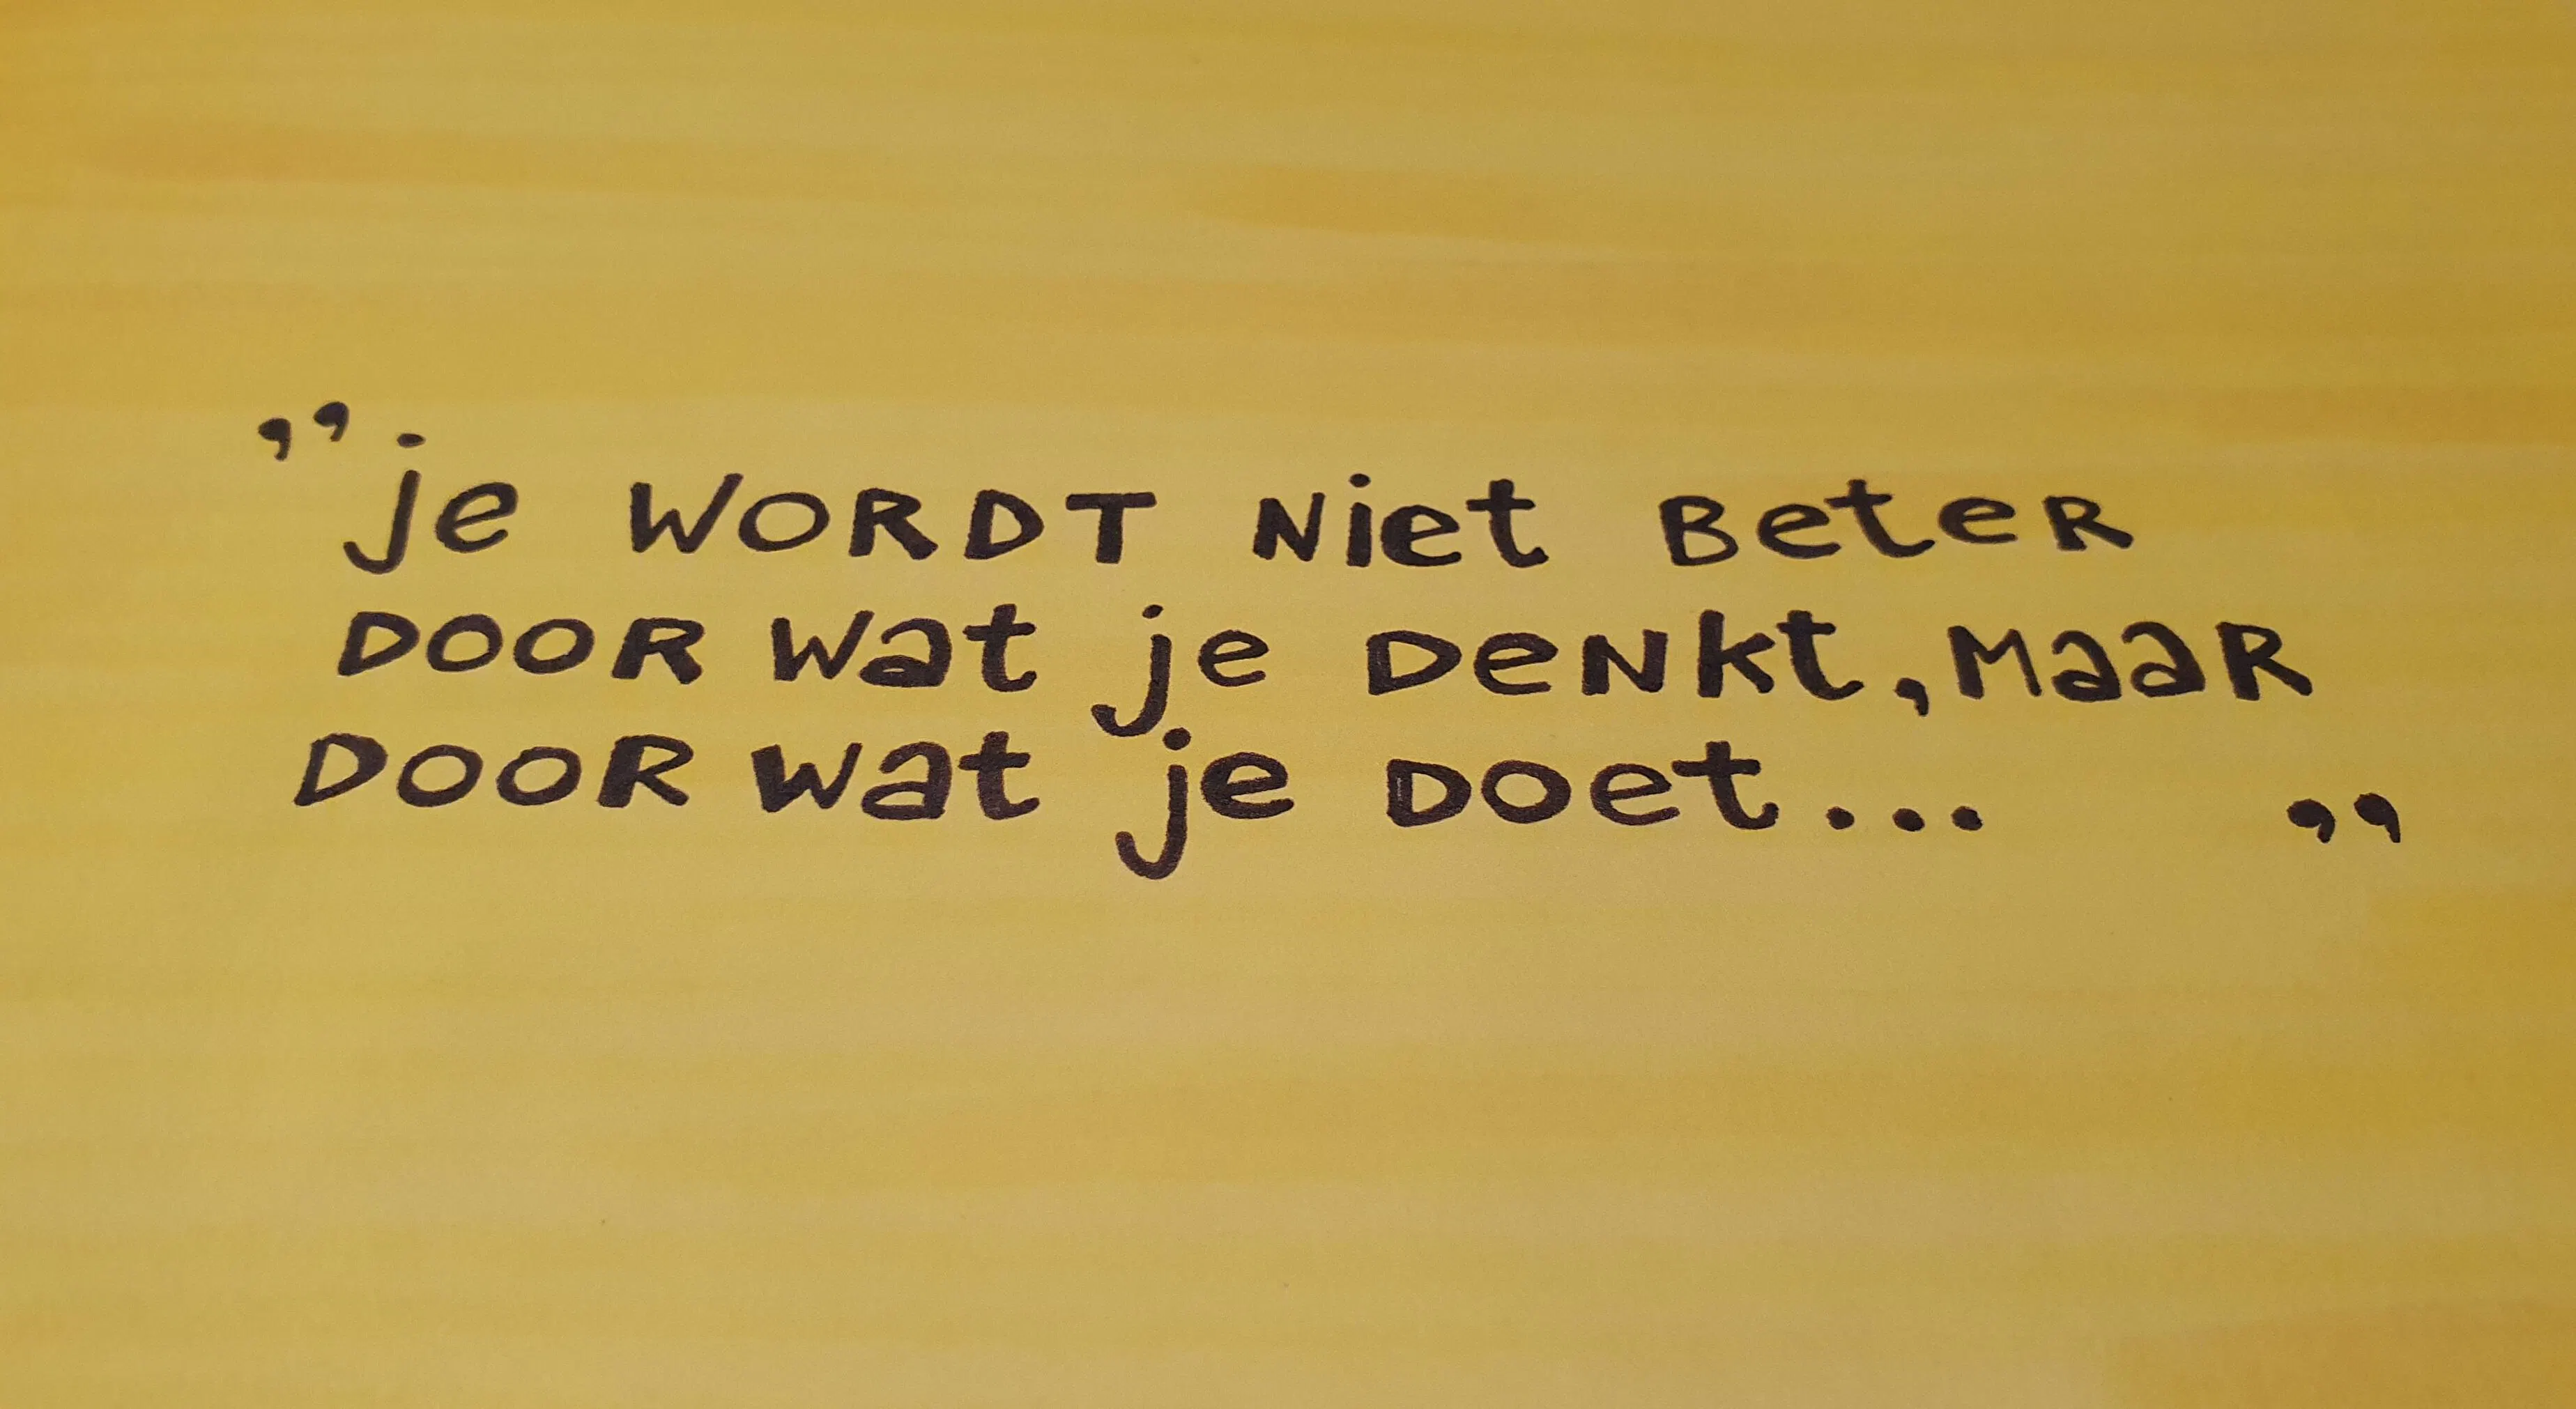 ”je WORDT Niet BeteR
DOOR wat je DeNkt, MaaR
DOOR wat je DOet... ”